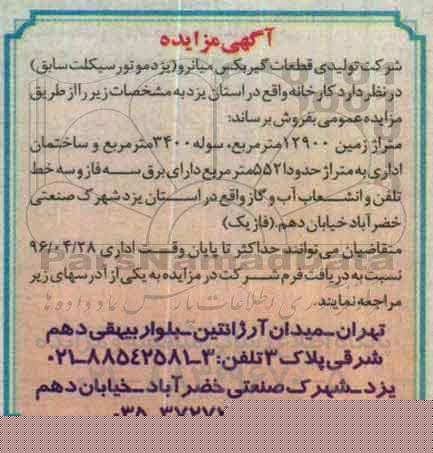 آگهی مزایده
شرکت تولیدی قطعات گیربکس میانرو(یزد موتور سیکلت سابق)
در نظر دارد کارخانه واقع در استان یزد به مشخصات زیر را از طریق
مزایده عمومی بفروش برساند:
متراژ زمین ۱۲۹۰۰مترمربع، سوله ۳۴۰۰مترمربع و ساختمان
اداری به متراژ حدودا ۵۵۲متر مربع دارای برق سه فاز و سه خط
تلفن و انشعاب آب و گاز واقع در استان یزد شهرک صنعتی
خضرآباد خیابان دهم.(فاز یک)
متقاضیان می توانند حداکثر تا پایان وقت اداری ۹۶/۰۴/۲۸
نسبت به دریافت فرم شرکت در مزایده به یکی از آدرسهای زیر
مراجعه نمایند.
تهران_میدان آرژانتین_بلوار بیهقی دهم
شرقی پلاک ۳ تلفن: ۳_۸۸۵۴۲۵۸۱_۰۲۱
یزد_شهرک صنعتی خضرآباد_خیابان دهم